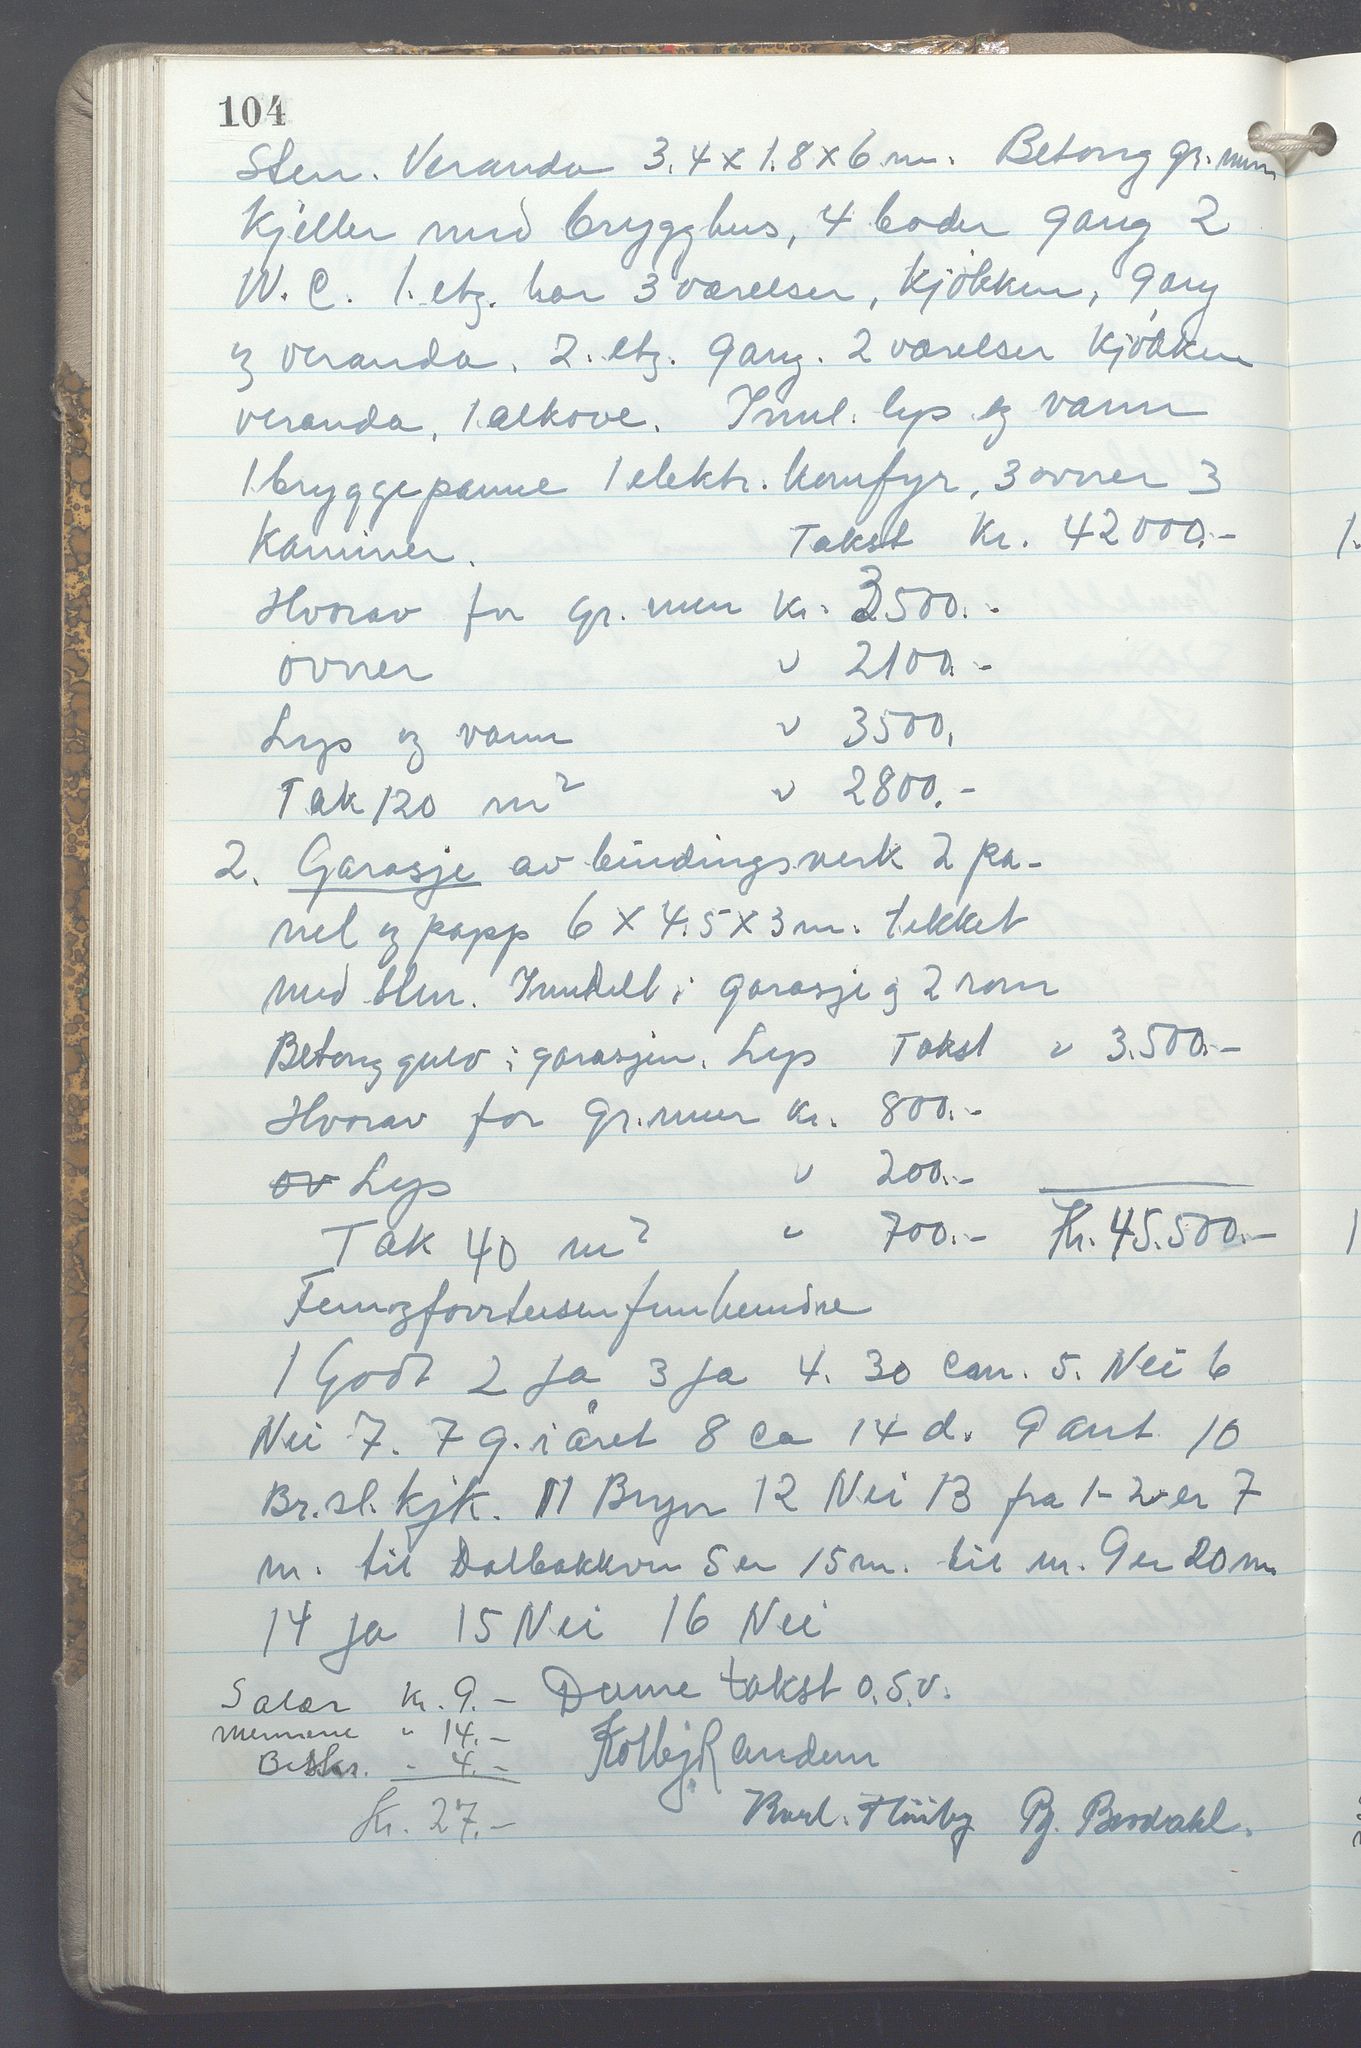 104
Sten. Veranda 3.4 x 1.8 x 6 m. Betong gr. mur
Kjeller med brygghus, 4 boder gang 2
W.C. 1. etg. har 3 værelser, kjøkken, gang
og veranda. 2. etg. gang. 2 værelser kjøkken
veranda, 1 alkove. Innl. lys og vann
1 bryggepanne 1 elektr. komfyr, 3 ovner 3
kaminer. Takst Kr. 42000.-
Hvorav for gr. mur kr. 3500.-
ovner " 2100.-
Lys og vann " 3500.
Tak 120 m² " 2800.-
2. Garasje av bindingsverk 2 pa-
nel og papp 6 x 4.5 x 3 m. tekket
med sten. Inndelt i garasje og 2 rom
Betong gulv i garasjen. Lys Takst " 3.500.-
Hvorav for gr. mur kr. 800.-
ov Lys " 200.-
Tak 40 m² " 700.- Kr. 45.500.-
Femogførrtitusenfemhundre
1 Godt 2 ja 3 ja 4. 30 cm. 5. Nei 6
Nei 7. 7 g. i året 8 ca 14 d. 9 ant 10
Br.sl. kjk. 11 Bryn 12 Nei 13 fra 1-2 er 7
m. til Dalbakken 5 er 15 m. til m. 9 er 20 m
14 ja 15 Nei 16 Nei
Salær kr. 9.- Denne takst o.s.v.
Mennene " 14.-
Beskr. " 4.-
Kr. 27.-
Karl.